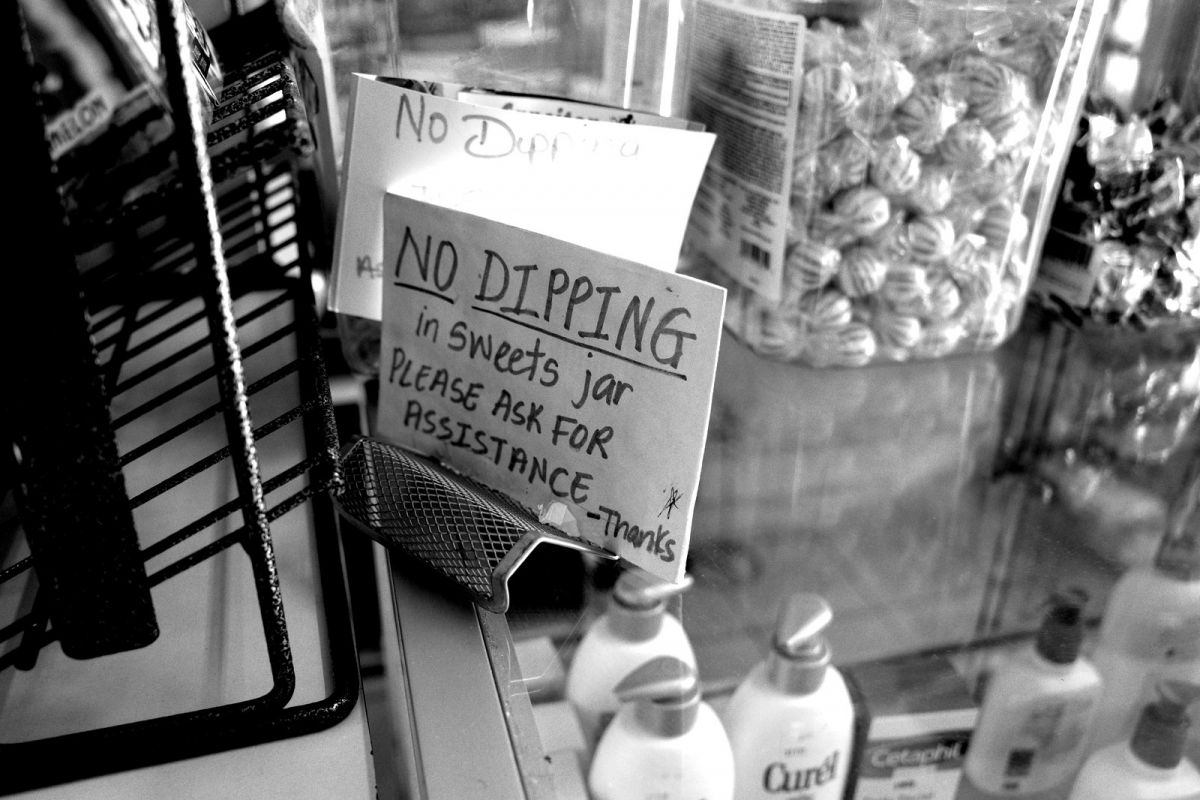 MELON
No Dipping
NO DIPPING
in sweets jar
PLEASE ASK FOR
ASSISTANCE
-Thanks
Curél
Cetaphil